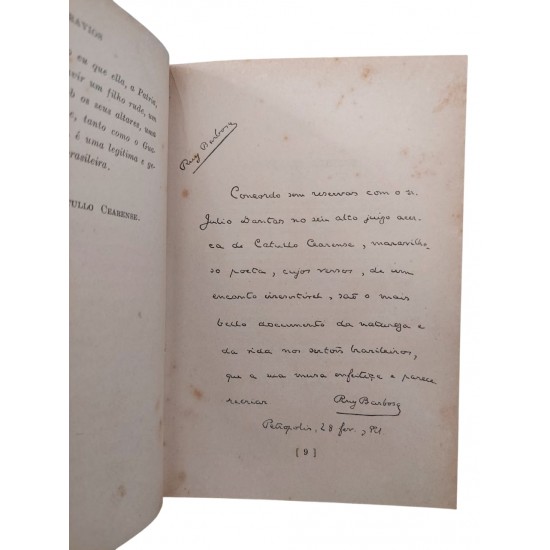 RAVIOS
eu que ella, a Patria,
vir um filho rude, um
b os seus altares, uma
e, tanto como o Gua-
é uma legitima e ge-
rasileira.
TULLO CEARENSE.
Ruy Barbosa
Concordo sem reservas com o sr.
Julio Dantas no seu alto juizo acer-
ca de Catullo Cearense, maravilho-
so poeta, cujos versos, de um
encanto irresistivel, são o mais
bello documento da natureza e
da vida nos sertões brasileiros,
que a sua musa enfeitiça e parece
recriar
Ruy Barbosa
Petropolis, 28 fev.,
[ 9 ]